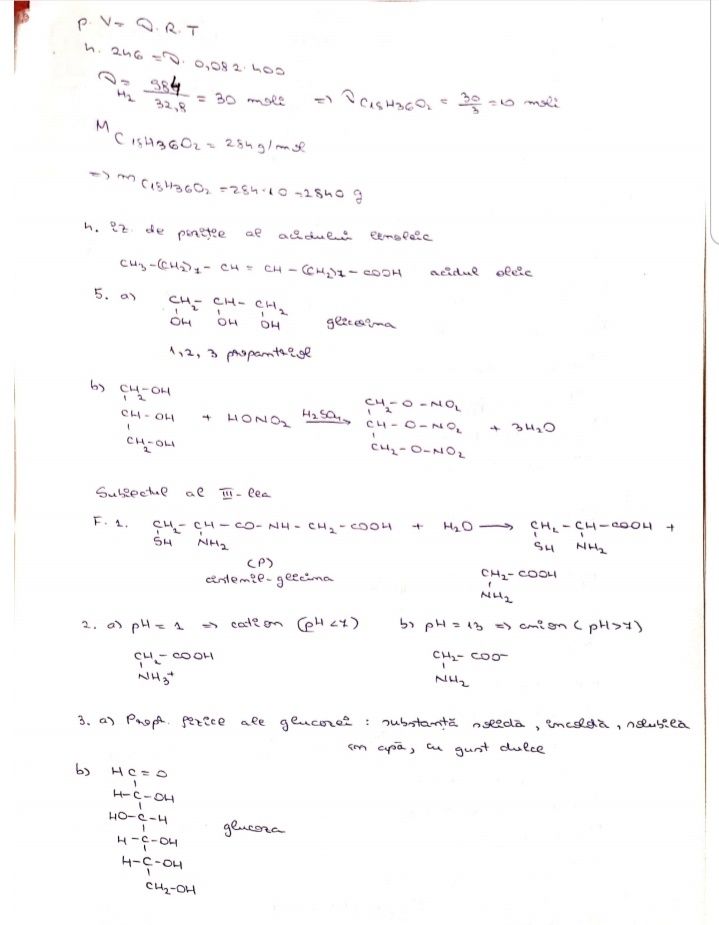 p. V = ν. R. T
4. 246 = ν. 0,082. 400
ν H2 = 984 / 32,8 = 30 moli => ν C18H36O2 = 30/3 = 10 moli
M C18H36O2 = 284 g/mol
=> m C18H36O2 = 284.10 = 2840 g
4. iz. de poziție al acidului linoleic
CH3-(CH2)7- CH = CH - (CH2)7 - COOH acidul oleic
5. a) CH2- CH- CH2
OH OH OH glicerina
1, 2, 3 propantriol
b) CH2-OH CH2- O -NO2
CH - OH + HONO2 H2SO4→ CH - O -NO2 + 3H2O
CH2-OH CH2 - O-NO2
Subiectul al III-lea
F. 1. CH2- CH - CO- NH - CH2 - COOH + H2O → CH2 - CH-COOH +
SH NH2 SH NH2
(P)
cisteinil-glicina CH2- COOH
NH2
2. a) pH = 1 => cation (pH <7) b) pH = 13 => anion ( pH>7)
CH2 - COOH CH2- COO-
NH3+ NH2
3. a) Propr. fizice ale glucozei : substanță solidă , incoloră , solubilă
în apă, cu gust dulce
b) HC = O
H-C-OH
HO-C-H
H-C-OH glucoza
H-C-OH
CH2-OH